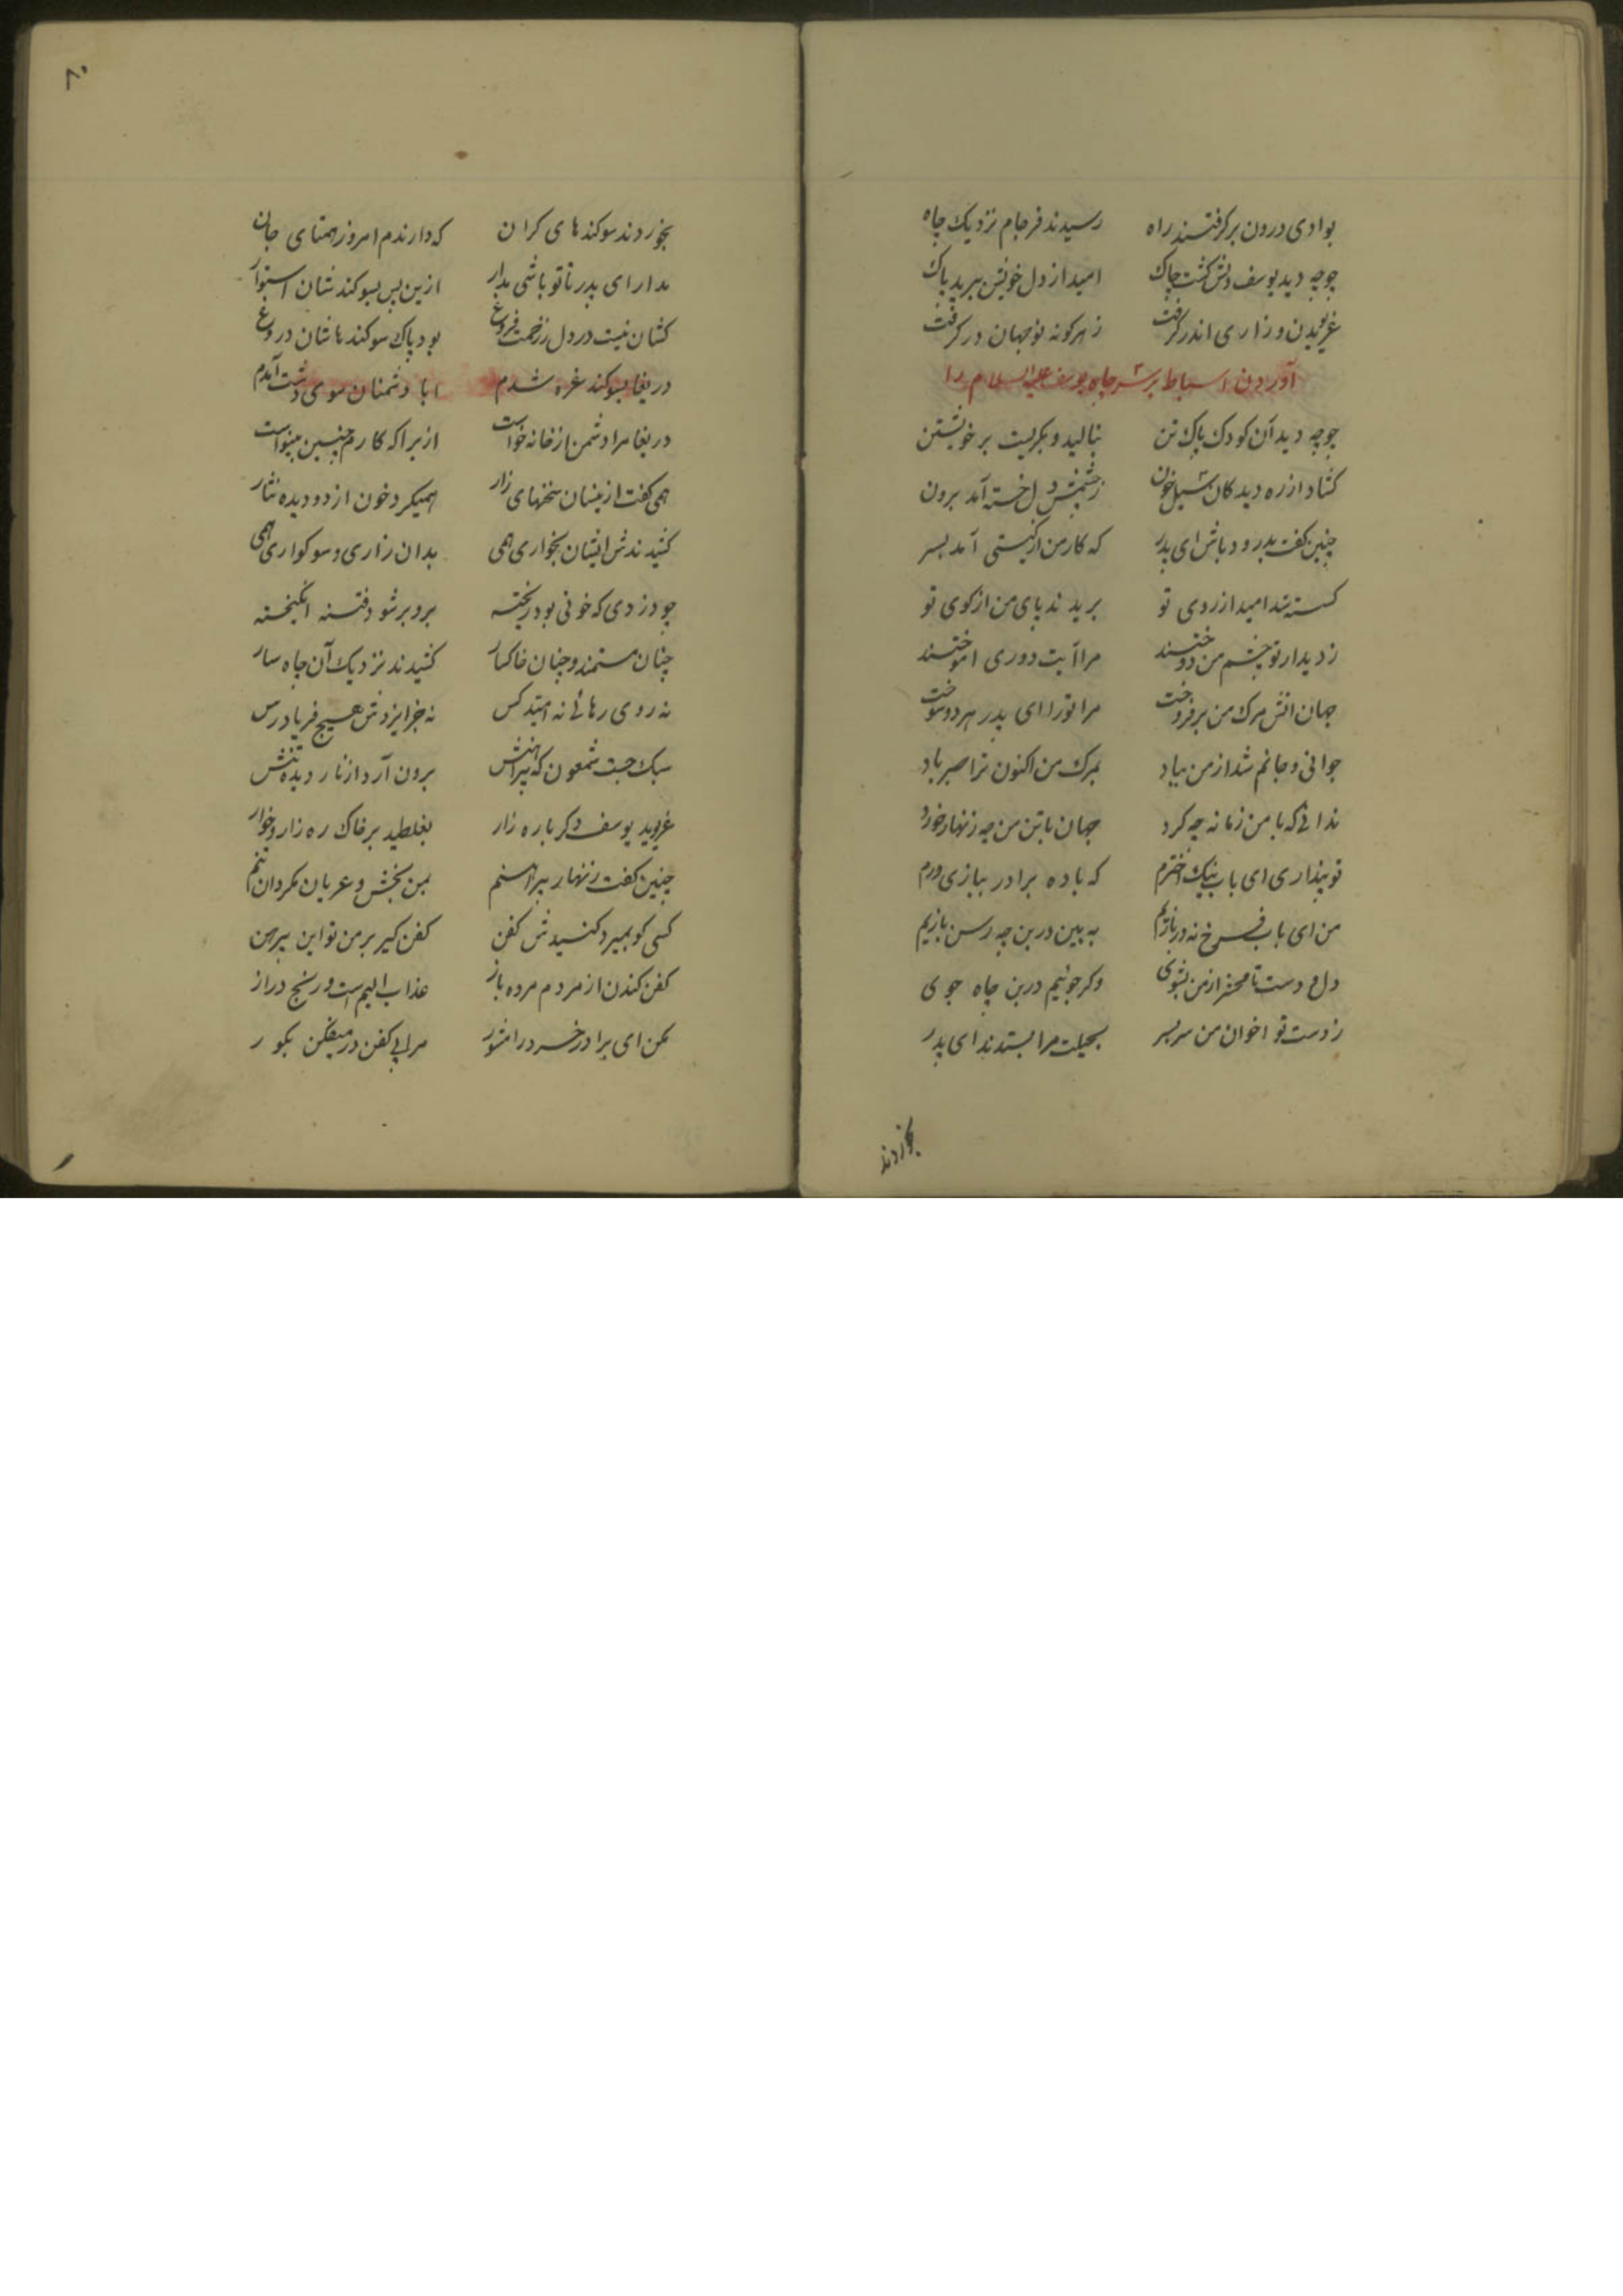 بوادی درون برکرفتند راه رسیدند فرجام نزدیک چاه
چوچه دید یوسف دلش کشت چاک امید از دل خویش ببرید پاک
غریویدن و زاری اندر کرفت ز هرکونه نوجهان در کرفت
آوردن اسباط بر سر چاه یوسف علیه السلام را
چوچه دید آن کودک پاک تن بنالید و بکریست بر خویشتن
کشاد از ره دیدکان سیل خون ز چشمش دل خسته آمد برون
چنین کفت بدرود باش ای پدر که کار من از کیتی آمد بسر
کسسته شد امید از روی تو بریدند پای من از کوی تو
ز دیدار تو چشم من دوختند مرا آیت دوری اموختند
جهان اتش مرک من برفروخت مرا تو را ای پدر هر دو سوخت
جوانی و جانم شد از من بباد بمرک من اکنون ترا صبر باد
ندانی که با من زمانه چه کرد جهان با تن من چه زنهار خورد
تو پنداری ای باب نیک اخترم که با ده برادر ببازی درم
من ای باب فرخ نه در بازیم به بین در بن چه رسن بازیم
دل و دست تا محشر از من بشوی وکر جوئیم در بن چاه جوی
ز دست تو اخوان من سربسر بحیلت مرا بستدند ای پدر
بخوردند
۸۰
بخوردند سوکندهای کران که دارندم امروز همتای جان
مدار ای پدر تا تو باشی مدار ازین پس بسوکندشان استوار
کشان نیست در دل ز رحمت فروغ بود پاک سوکندهاشان دروغ
دریغا بسوکند غره شدم ابا دشمنان سوی دشت آمدم
دریغا مرا دشمن از خانه خواست ازیرا که کارم چنین بینواست
همی کفت ازینسان سخنهای زار همیکرد خون از دو دیده نثار
کشیدندش ایشان بخواری همی بدان زاری و سوکواری همی
چو دزدی که خونی بود ریخته برو بر شود فتنه انکیخته
چنان مستمند و چنان خاکسار کشیدند نزدیک آن چاه سار
نه روی رهائی نه امید کس نه جز ایزدش هیچ فریادرس
سبک جست شمعون که پیراهنش برون آرد از نار دیده تنش
غریوید یوسف دکر باره زار بغلطید بر خاک ره زار و خوار
چنین کفت زنهار پیراهنم بمن بخش و عریان مکردان تنم
کسی کو بمیرد کنیدش کفن کفن کیر بر من تو این پیرهن
کفن کندن از مردم مرده باز عذاب الیم است و رنج دراز
مکن ای برادر خرد را مشور مرا بی کفن در میفکن بکور